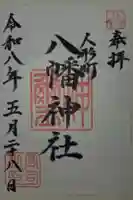 奉拝
人形町
八幡神社
令和八年五月二十八日